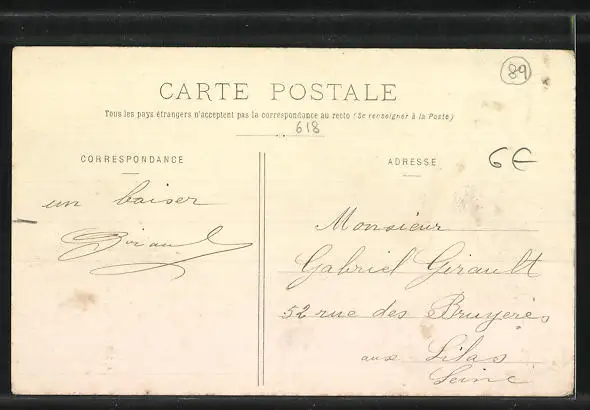 89
CARTE POSTALE
Tous les pays étrangers n'acceptent pas la correspondance au recto (Se renseigner à la Poste)
618
CORRESPONDANCE
ADRESSE
6€
un baiser
Monsieur
Gabriel Girault
52 rue des Bruyeres
aux Lilas
Seine